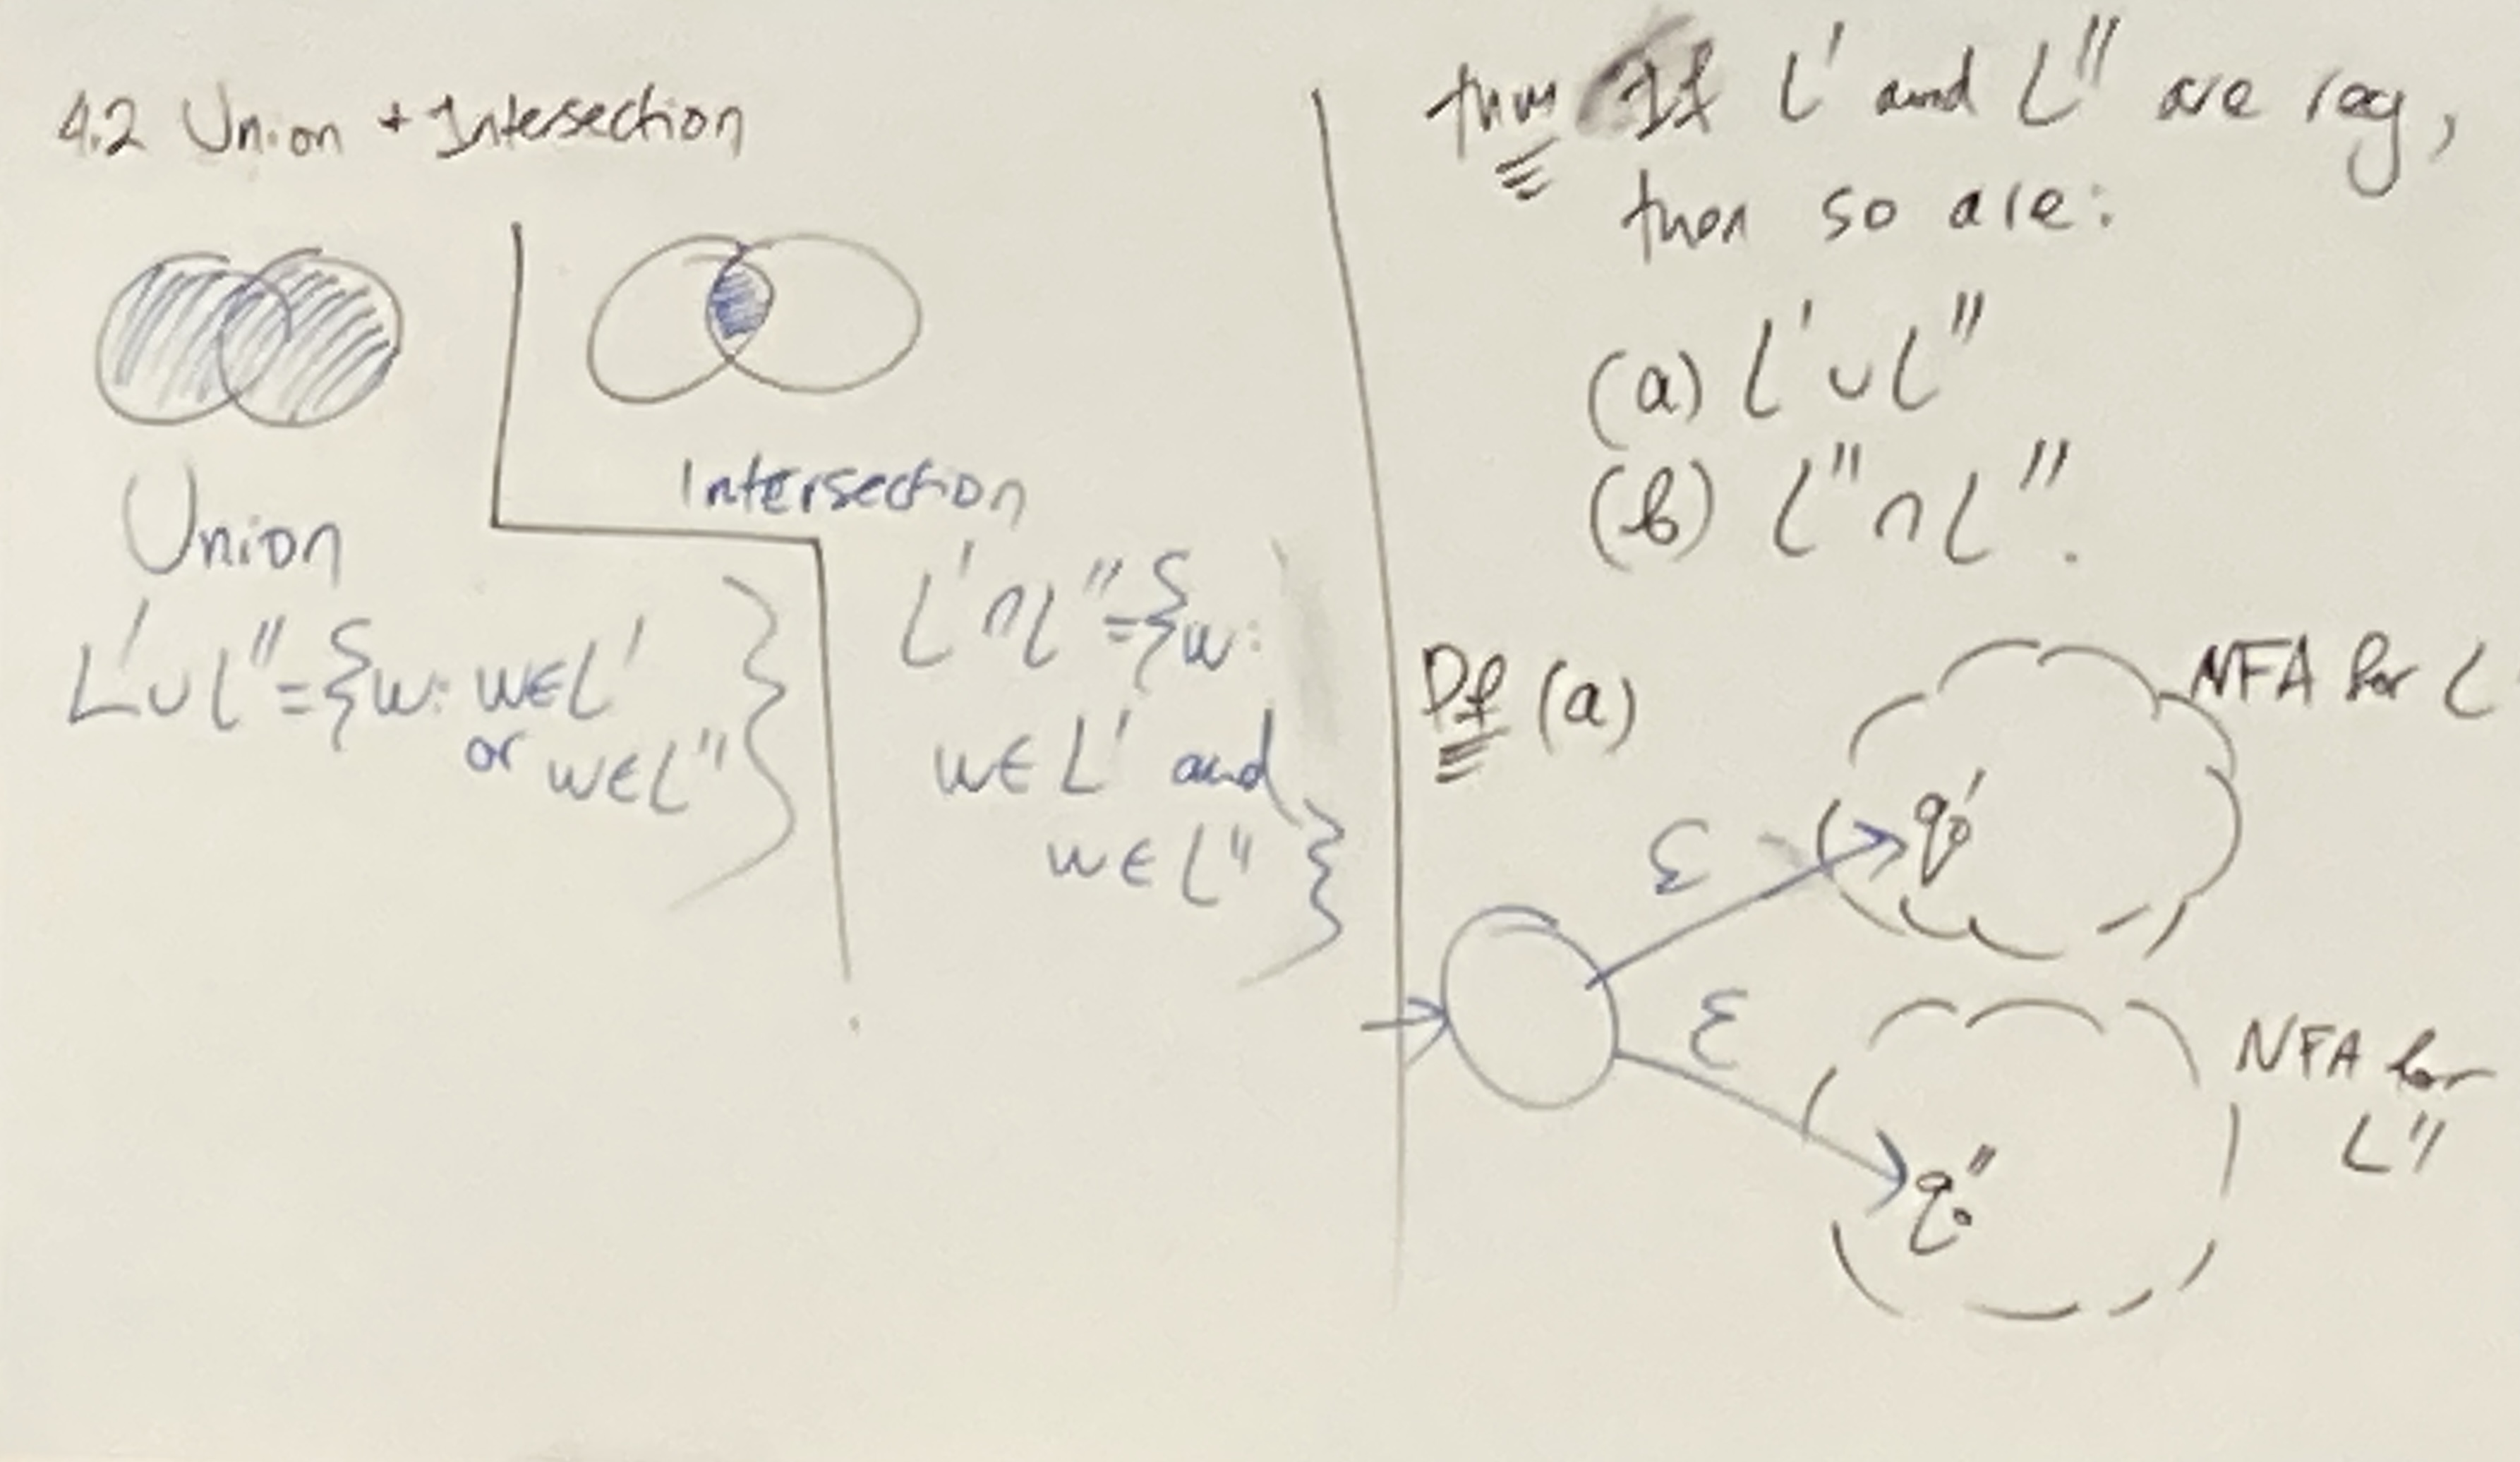 4.2 Union + Intersection
Union
L'∪L''={w: w∈L'
or w∈L''}
Intersection
L'∩L''={w:
w∈L' and
w∈L''}
thm If L' and L'' are reg,
then so are:
(a) L'∪L''
(b) L''∩L''.
Pf (a)
NFA for L
ε
q₀'
ε
NFA for
L''
q₀''